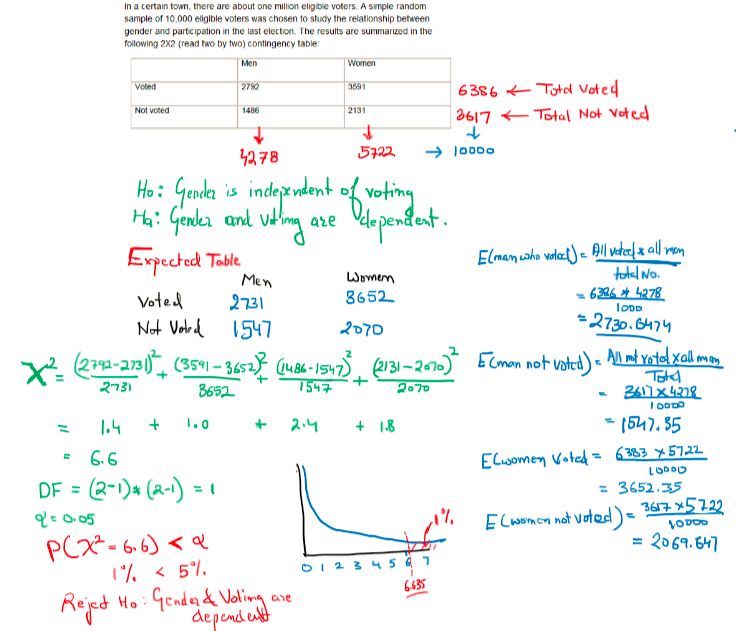 In a certain town, there are about one million eligible voters. A simple random
sample of 10,000 eligible voters was chosen to study the relationship between
gender and participation in the last election. The results are summarized in the
following 2X2 (read two by two) contingency table:
Men Women
Voted 2792 3591 6386 ← Total Voted
Not voted 1486 2131 3617 ← Total Not Voted
4278 5722 → 10000
Ho: Gender is independent of voting
Ha: Gender and voting are dependent.
Expected Table
Men Women
Voted 2731 3652
Not Voted 1547 2070
X² = (2792-2731)²/2731 + (3591-3652)²/3652 + (1486-1547)²/1547 + (2131-2070)²/2070
= 1.4 + 1.0 + 2.4 + 1.8
= 6.6
DF = (2-1)*(2-1) = 1
α = 0.05
P(X² = 6.6) < α
1% < 5%
Reject Ho: Gender & Voting are
dependent
E(man who voted) = All voted x all men
total No.
= 6386 * 4278
1000
= 2730.6474
E(man not voted) = All not voted x all man
Total
= 3617 x 4278
10000
= 1547.35
E(women Voted = 6383 x 5722
10000
= 3652.35
E(women not voted) = 3617 x 5722
10000
= 2069.647
1%
0 1 2 3 4 5 6 7
6.635